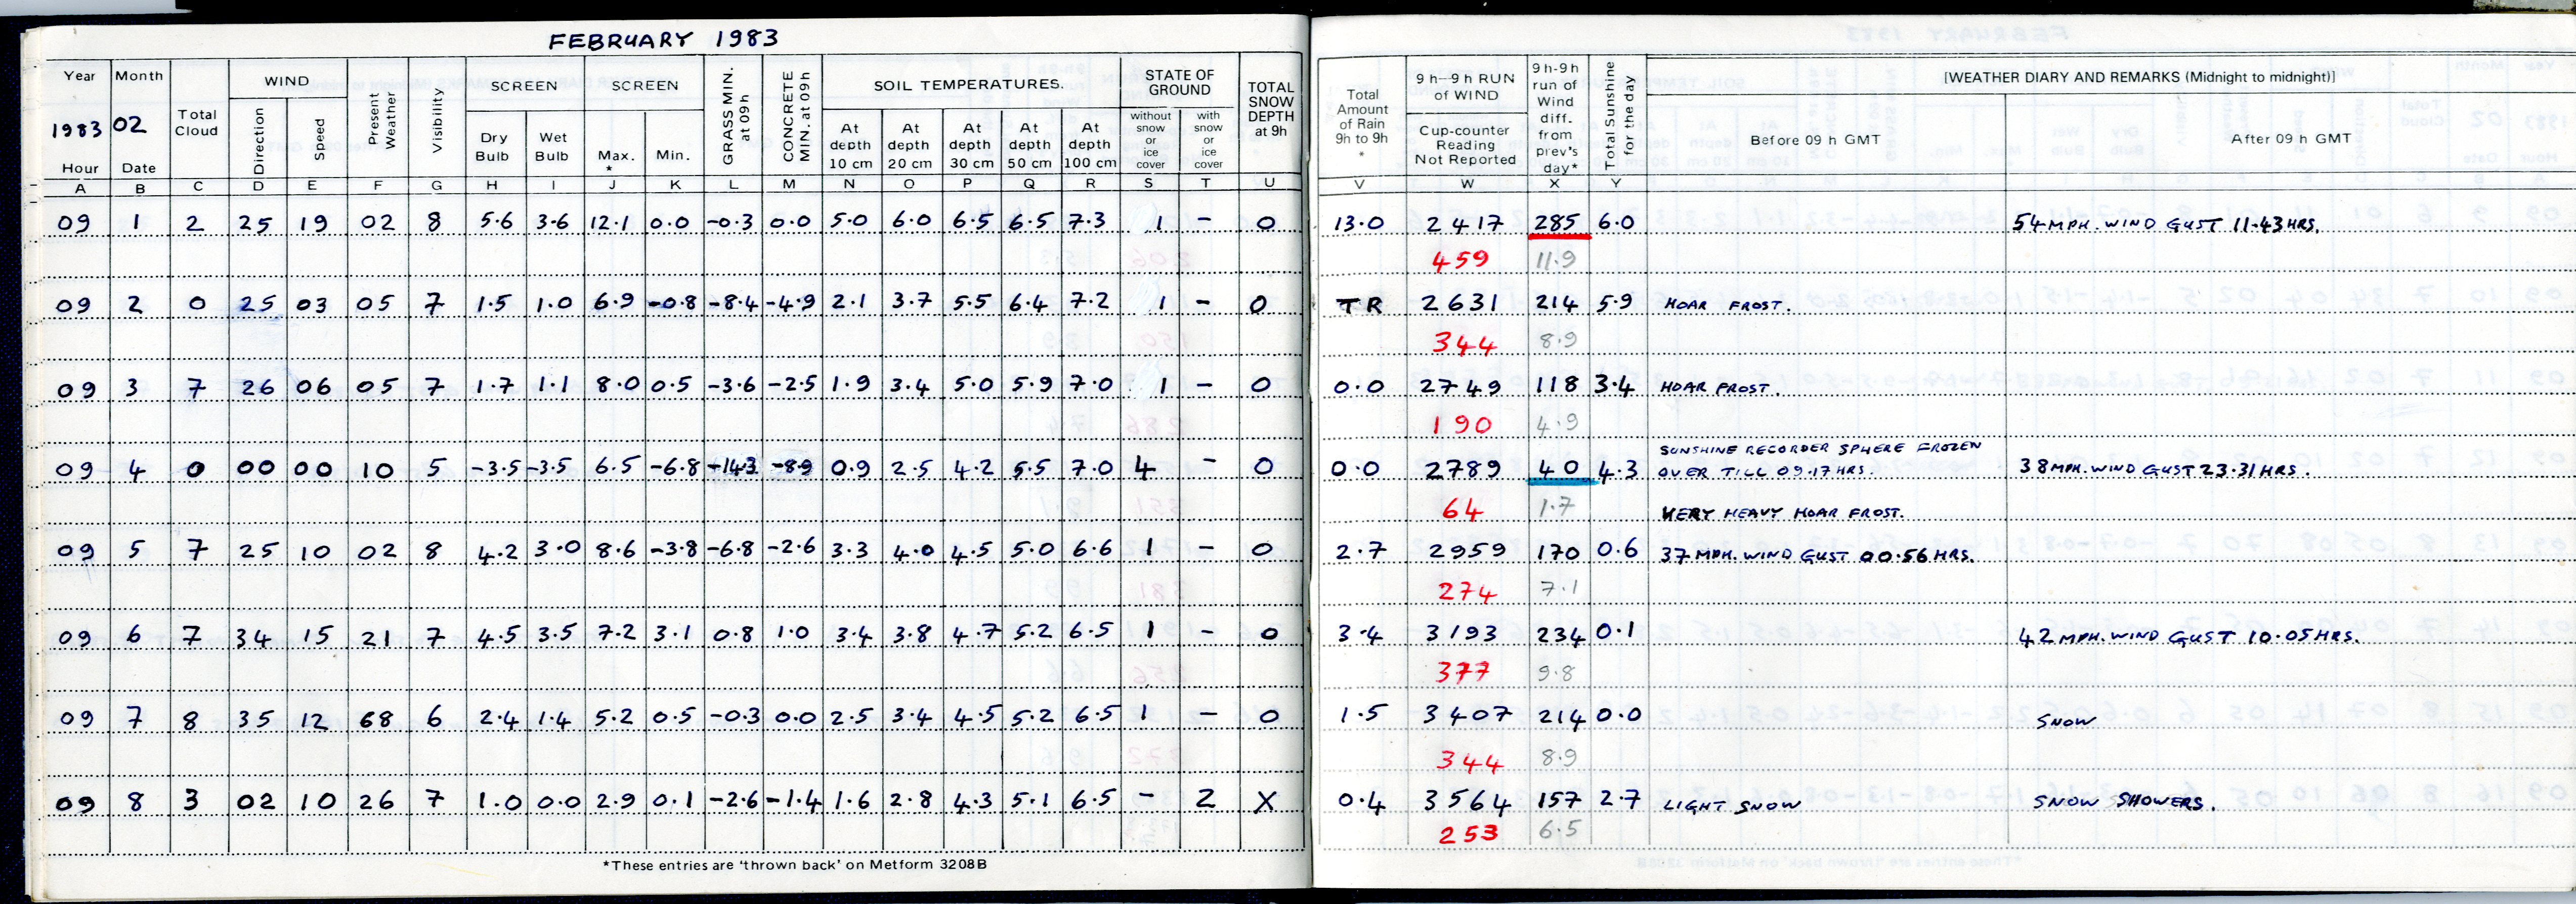 FEBRUARY 1983
Year Month WIND SCREEN SCREEN SOIL TEMPERATURES. STATE OF GROUND
1983 02 Total Cloud Direction Speed Present Weather Visibility Dry Bulb Wet Bulb Max. * Min. GRASS MIN. at 09h CONCRETE MIN. at 09h At depth 10 cm At depth 20 cm At depth 30 cm At depth 50 cm At depth 100 cm without snow or ice cover with snow or ice cover TOTAL SNOW DEPTH at 9h
Hour Date
A B C D E F G H I J K L M N O P Q R S T U
09 1 2 25 19 02 8 5.6 3.6 12.1 0.0 -0.3 0.0 5.0 6.0 6.5 6.5 7.3 1 - 0
09 2 0 25 03 05 7 1.5 1.0 6.9 -0.8 -8.4 -4.9 2.1 3.7 5.5 6.4 7.2 1 - 0
09 3 7 26 06 05 7 1.7 1.1 8.0 0.5 -3.6 -2.5 1.9 3.4 5.0 5.9 7.0 1 - 0
09 4 0 00 00 10 5 -3.5 -3.5 6.5 -6.8 -14.3 -8.9 0.9 2.5 4.2 5.5 7.0 4 - 0
09 5 7 25 10 02 8 4.2 3.0 8.6 -3.8 -6.8 -2.6 3.3 4.0 4.5 5.0 6.6 1 - 0
09 6 7 34 15 21 7 4.5 3.5 7.2 3.1 0.8 1.0 3.4 3.8 4.7 5.2 6.5 1 - 0
09 7 8 35 12 68 6 2.4 1.4 5.2 0.5 -0.3 0.0 2.5 3.4 4.5 5.2 6.5 1 - 0
09 8 3 02 10 26 7 1.0 0.0 2.9 0.1 -2.6 -1.4 1.6 2.8 4.3 5.1 6.5 - 2 X
*These entries are 'thrown back' on Metform 3208B
Total Amount of Rain 9h to 9h * 9 h–9 h RUN of WIND Cup-counter Reading Not Reported 9 h-9h run of Wind diff. from prev's day* Total Sunshine for the day [WEATHER DIARY AND REMARKS (Midnight to midnight)]
Before 09 h GMT After 09 h GMT
V W X Y
13.0 2417 285 6.0 54 MPH. WIND GUST 11.43 HRS.
459 11.9
TR 2631 214 5.9 HOAR FROST.
344 8.9
0.0 2749 118 3.4 HOAR FROST.
190 4.9
SUNSHINE RECORDER SPHERE FROZEN
0.0 2789 40 4.3 OVER TILL 09.17 HRS. 38 MPH. WIND GUST 23.31 HRS.
64 1.7 VERY HEAVY HOAR FROST.
2.7 2959 170 0.6 37 MPH. WIND GUST 00.56 HRS.
274 7.1
3.4 3193 234 0.1 42 MPH. WIND GUST 10.05 HRS.
377 9.8
1.5 3407 214 0.0 SNOW
344 8.9
0.4 3564 157 2.7 LIGHT SNOW SNOW SHOWERS.
253 6.5